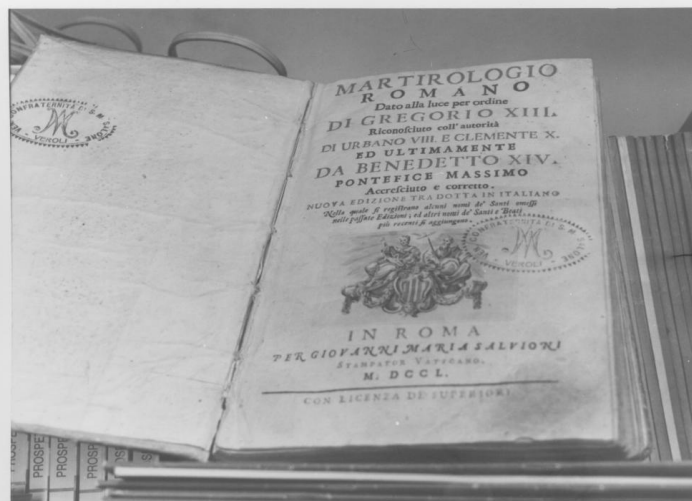 MARTIROLOGIO
ROMANO
Dato alla luce per ordine
DI GREGORIO XIII.
Riconosciuto coll'autorità
DI URBANO VIII. E CLEMENTE X.
ED ULTIMAMENTE
DA BENEDETTO XIV.
PONTEFICE MASSIMO
Accresciuto e corretto.
NUOVA EDIZIONE TRADOTTA IN ITALIANO
Nella quale si registrano alcuni nomi de' Santi omessi
nelle passate Edizioni; ed altri nomi de' Santi e Beati
più recenti si aggiungono.
IN ROMA
PER GIOVANNI MARIA SALVIONI
STAMPATOR VATICANO.
M. DCCL.
CON LICENZA DE' SUPERIORI
VEN. CONFRATERNITA DI S. M. SALOME
VEROLI
CONFRATERNITA DI S. M. SALOME
VEROLI
PROSPE
PROSPE
PROSPE
PROSPE